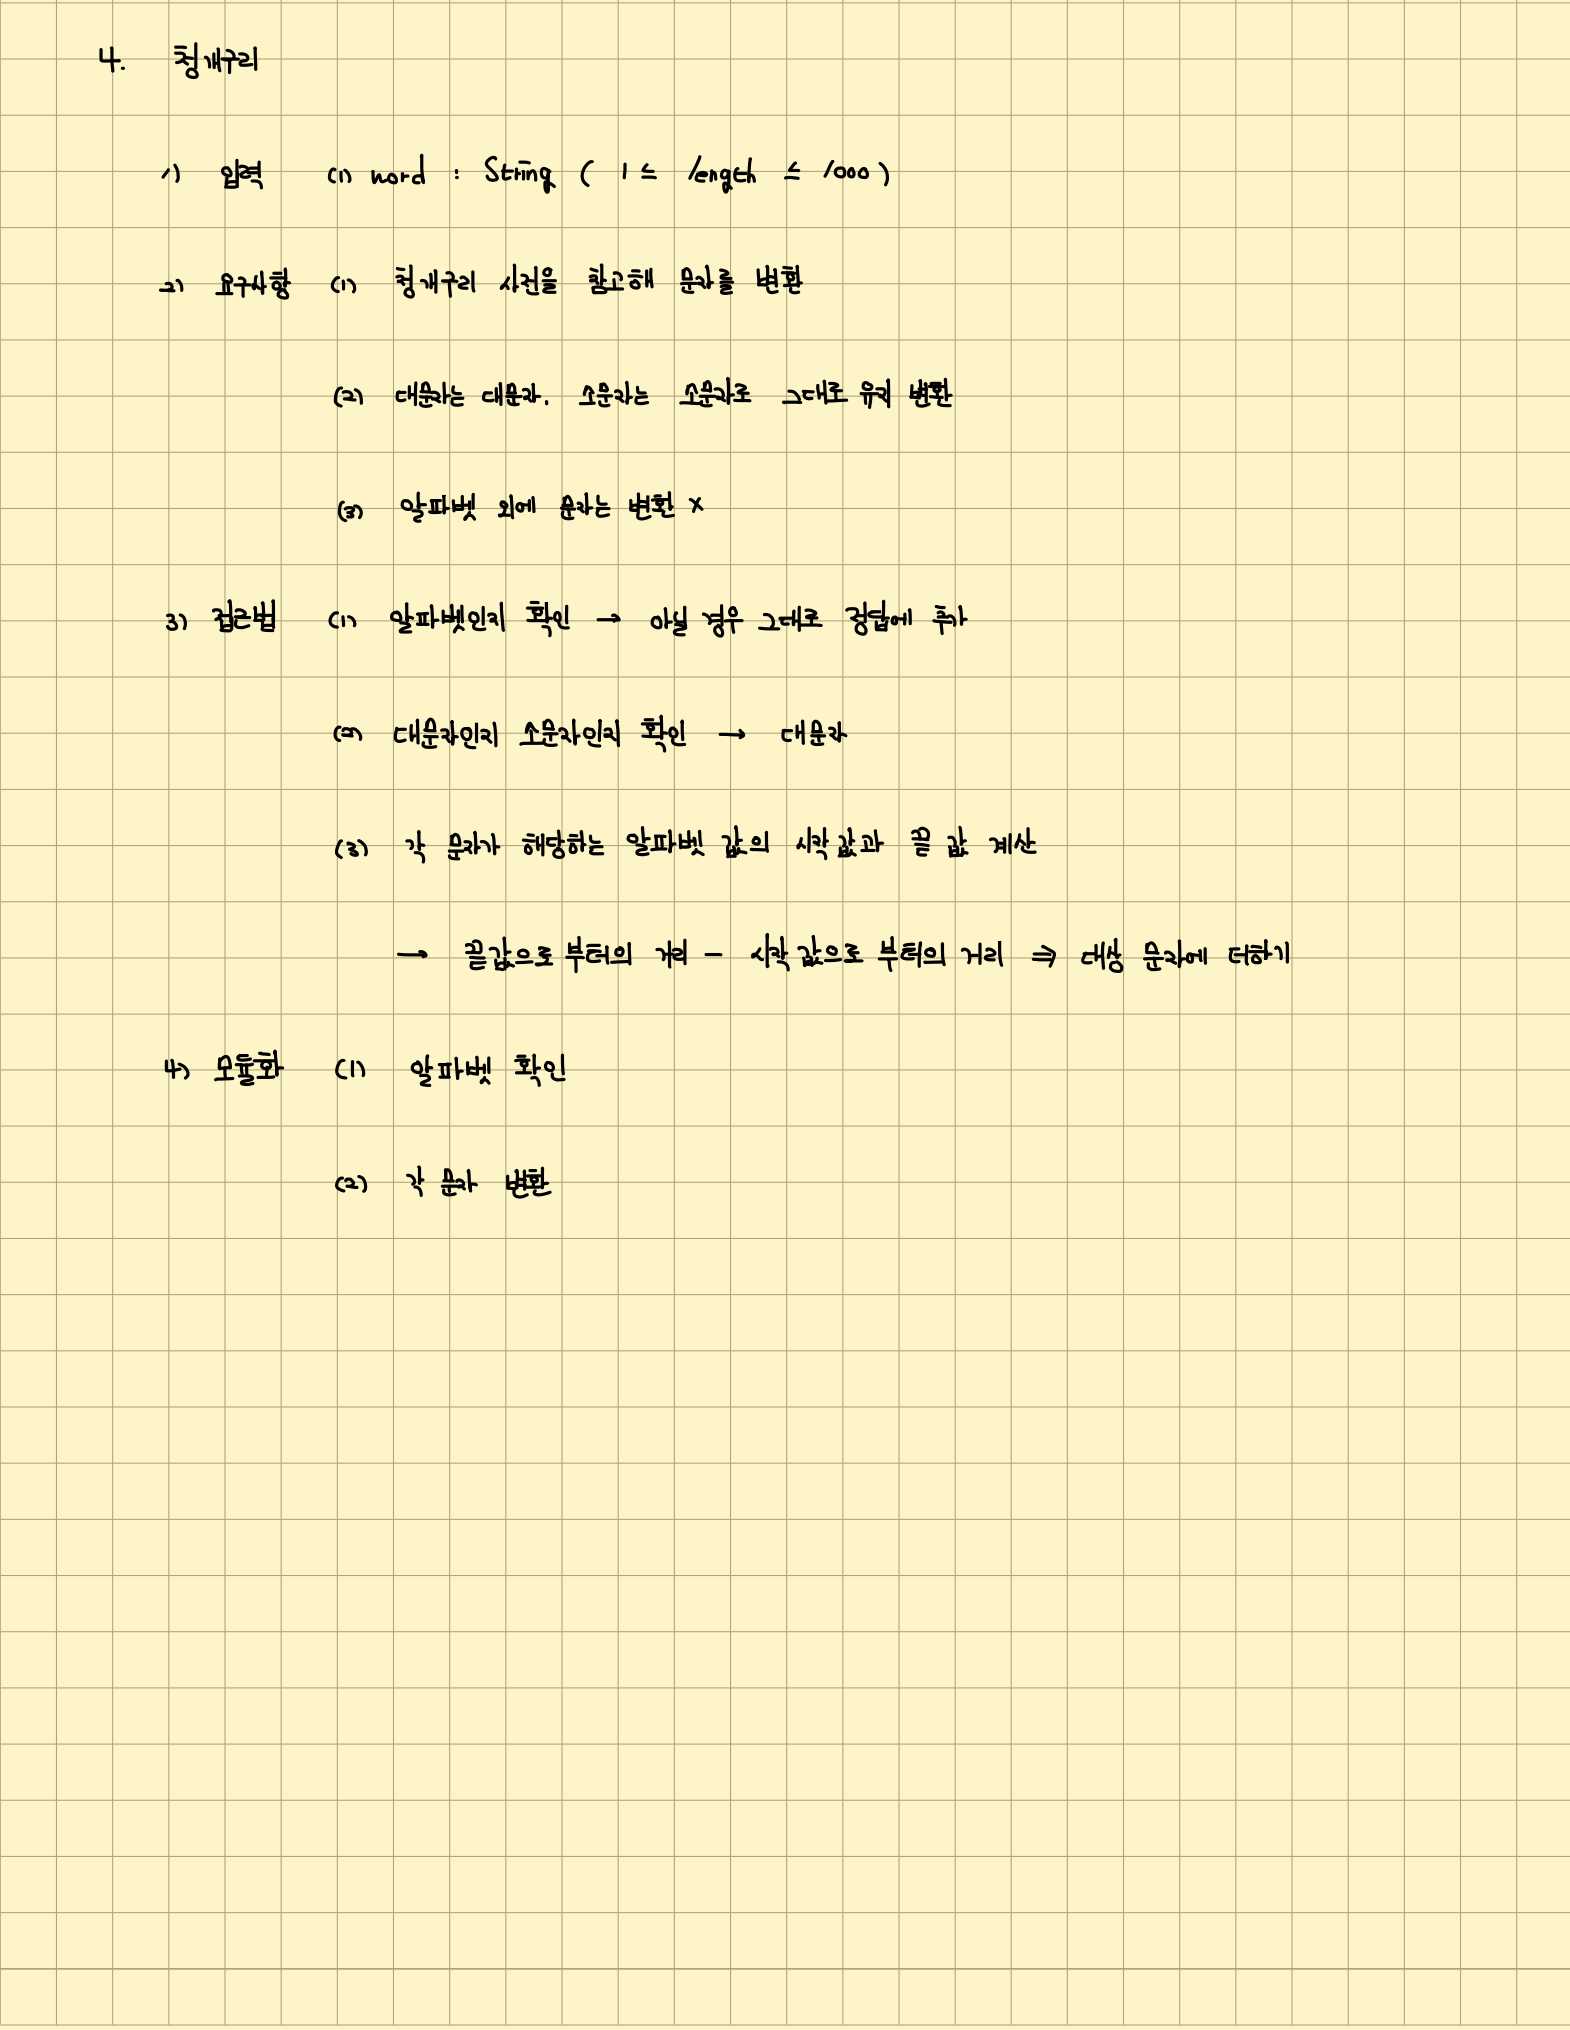 4. 청개구리
1) 입력 (1) word : String ( 1 ≤ length ≤ 1000 )
2) 요구사항 (1) 청개구리 사전을 참고해 문자를 변환
(2) 대문자는 대문자. 소문자는 소문자로 그대로 유지 변환
(3) 알파벳 외에 문자는 변환 x
3) 접근법 (1) 알파벳인지 확인 → 아닐 경우 그대로 정답에 추가
(2) 대문자인지 소문자인지 확인 → 대문자
(3) 각 문자가 해당하는 알파벳 값의 시작 값과 끝 값 계산
→ 끝값으로 부터의 거리 - 시작 값으로 부터의 거리 ⇒ 대상 문자에 더하기
4) 모듈화 (1) 알파벳 확인
(2) 각 문자 변환